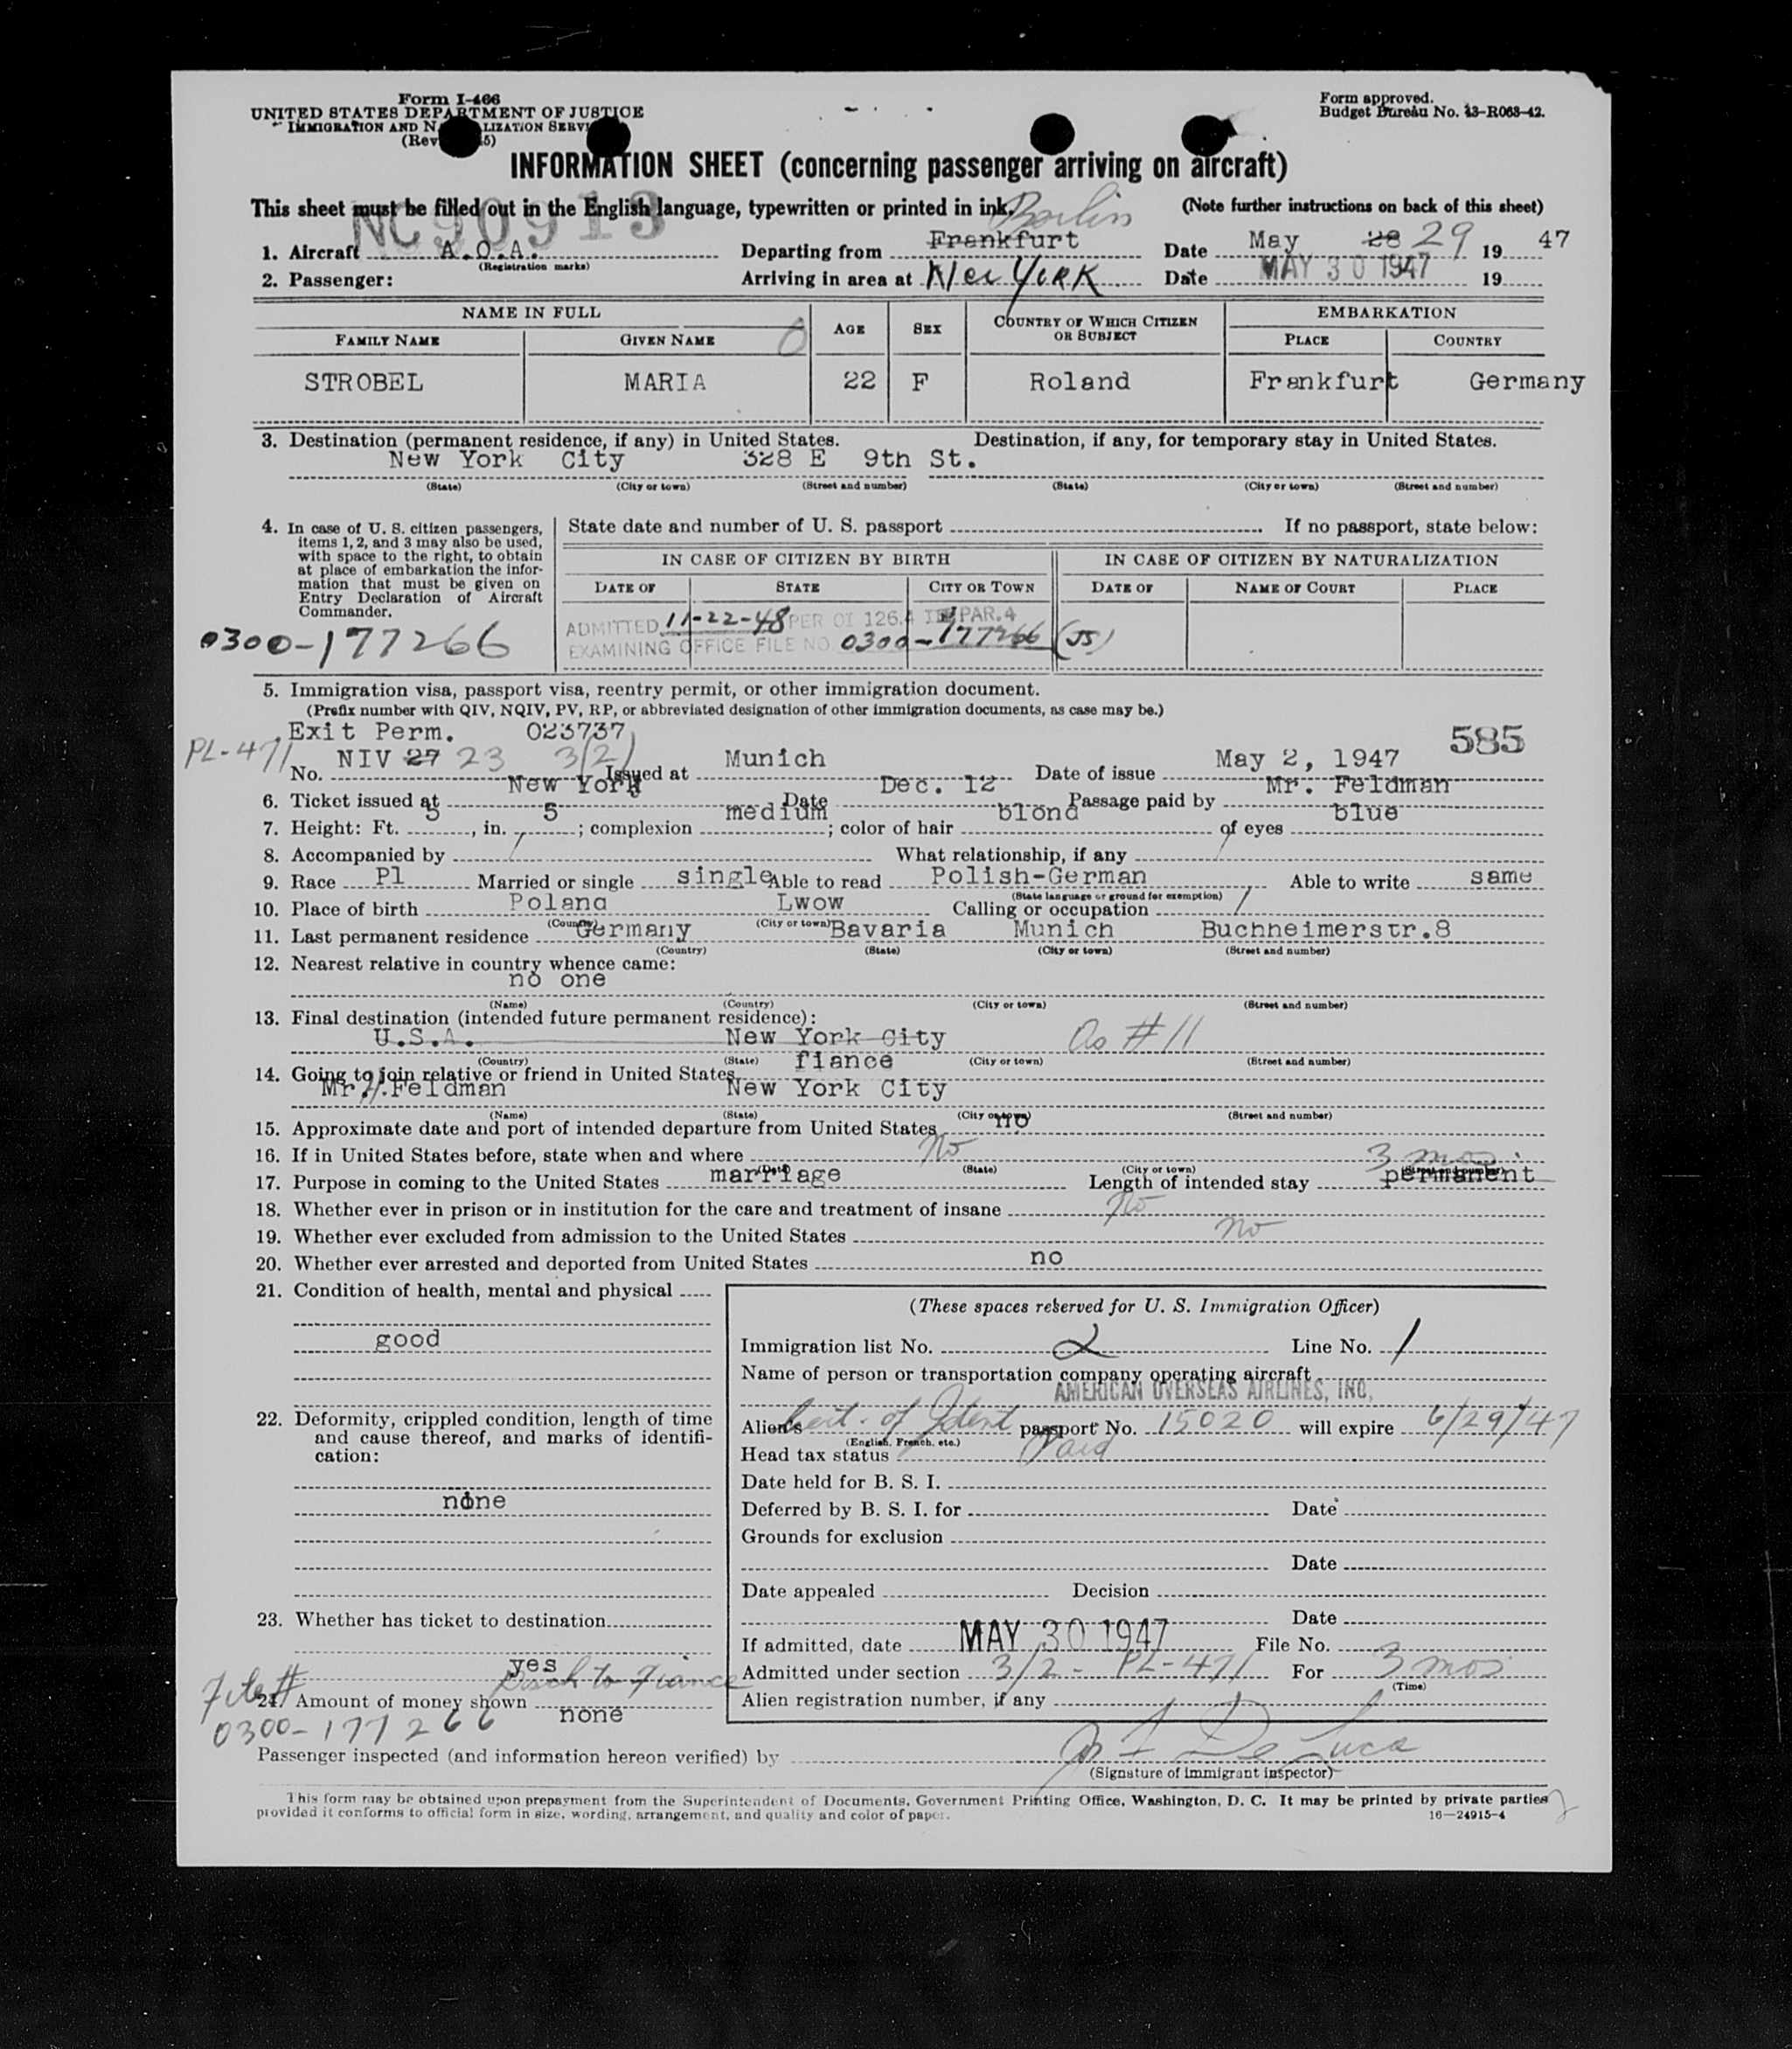 Form I-466
UNITED STATES DEPARTMENT OF JUSTICE
IMMIGRATION AND N LIZATION SERVI
(Rev 5)
Form approved.
Budget Bureau No. 43-R068-42.
INFORMATION SHEET (concerning passenger arriving on aircraft)
This sheet must be filled out in the English language, typewritten or printed in ink. Berlin (Note further instructions on back of this sheet)
NC90913
1. Aircraft A.O.A. Departing from Frankfurt Date May 28 29 19 47
(Registration marks)
2. Passenger: Arriving in area at New York Date MAY 30 1947 19
NAME IN FULL AGE SEX COUNTRY OF WHICH CITIZEN OR SUBJECT EMBARKATION
FAMILY NAME GIVEN NAME PLACE COUNTRY
STROBEL MARIA 22 F Roland Frankfurt Germany
3. Destination (permanent residence, if any) in United States. Destination, if any, for temporary stay in United States.
New York City 328 E 9th St.
(State) (City or town) (Street and number) (State) (City or town) (Street and number)
4. In case of U. S. citizen passengers, items 1, 2, and 3 may also be used, with space to the right, to obtain at place of embarkation the information that must be given on Entry Declaration of Aircraft Commander.
State date and number of U. S. passport If no passport, state below:
IN CASE OF CITIZEN BY BIRTH IN CASE OF CITIZEN BY NATURALIZATION
DATE OF STATE CITY OR TOWN DATE OF NAME OF COURT PLACE
ADMITTED 11-22-48 PER OI 126.4 PAR.4
0300-177266 EXAMINING OFFICE FILE NO 0300-177266 (JS)
5. Immigration visa, passport visa, reentry permit, or other immigration document.
(Prefix number with QIV, NQIV, PV, RP, or abbreviated designation of other immigration documents, as case may be.)
Exit Perm. 023737 585
PL-471 No. NIV 27 23 3(2) Issued at Munich Date of issue May 2, 1947
6. Ticket issued at New York Date Dec. 12 Passage paid by Mr. Feldman
7. Height: Ft. 5, in. 5; complexion medium; color of hair blond of eyes blue
8. Accompanied by / What relationship, if any /
9. Race Pl Married or single single Able to read Polish-German Able to write same
(State language or ground for exemption)
10. Place of birth Poland Lwow Calling or occupation /
(Country) (City or town)
11. Last permanent residence Germany Bavaria Munich Buchheimerstr.8
(Country) (State) (City or town) (Street and number)
12. Nearest relative in country whence came:
no one
(Name) (Country) (City or town) (Street and number)
13. Final destination (intended future permanent residence):
U.S.A. New York City As #11
(Country) (State) (City or town) (Street and number)
14. Going to join relative or friend in United States fiance
Mr.H.Feldman New York City
(Name) (State) (City or town) (Street and number)
15. Approximate date and port of intended departure from United States no
16. If in United States before, state when and where No
(Date) (State) (City or town) (Street and number)
17. Purpose in coming to the United States marriage Length of intended stay 3 mos. permanent
18. Whether ever in prison or in institution for the care and treatment of insane No
19. Whether ever excluded from admission to the United States no
20. Whether ever arrested and deported from United States no
21. Condition of health, mental and physical
good
22. Deformity, crippled condition, length of time and cause thereof, and marks of identification:
none
23. Whether has ticket to destination
yes to Fiance
File #
24. Amount of money shown none
0300-177266
(These spaces reserved for U. S. Immigration Officer)
Immigration list No. 2 Line No. 1
Name of person or transportation company operating aircraft
AMERICAN OVERSEAS AIRLINES, INC.
Alien's Cert. of Ident passport No. 15020 will expire 6/29/47
(English, French, etc.)
Head tax status Paid
Date held for B. S. I.
Deferred by B. S. I. for Date
Grounds for exclusion
Date
Date appealed Decision
Date
If admitted, date MAY 30 1947 File No.
Admitted under section 3/2 - PL-471 For 3 mos
(Time)
Alien registration number, if any
Passenger inspected (and information hereon verified) by De Luca
(Signature of immigrant inspector)
This form may be obtained upon prepayment from the Superintendent of Documents, Government Printing Office, Washington, D. C. It may be printed by private parties
provided it conforms to official form in size, wording, arrangement, and quality and color of paper. 16—24915-4